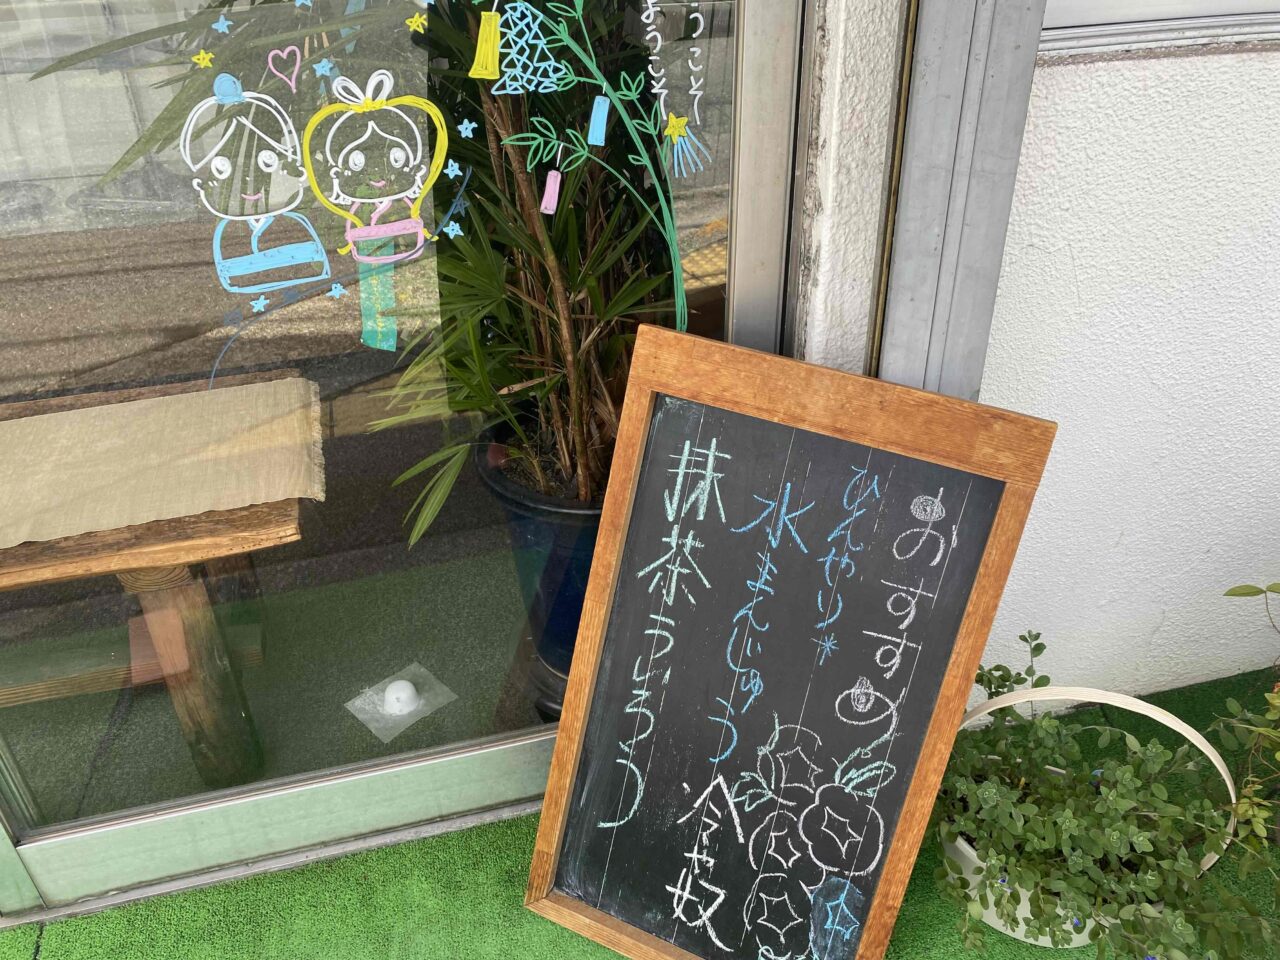 うこそ〜
ようこそ〜
おすすめ
ひんやり*
水まんじゅう
冷や奴
抹茶ういろう